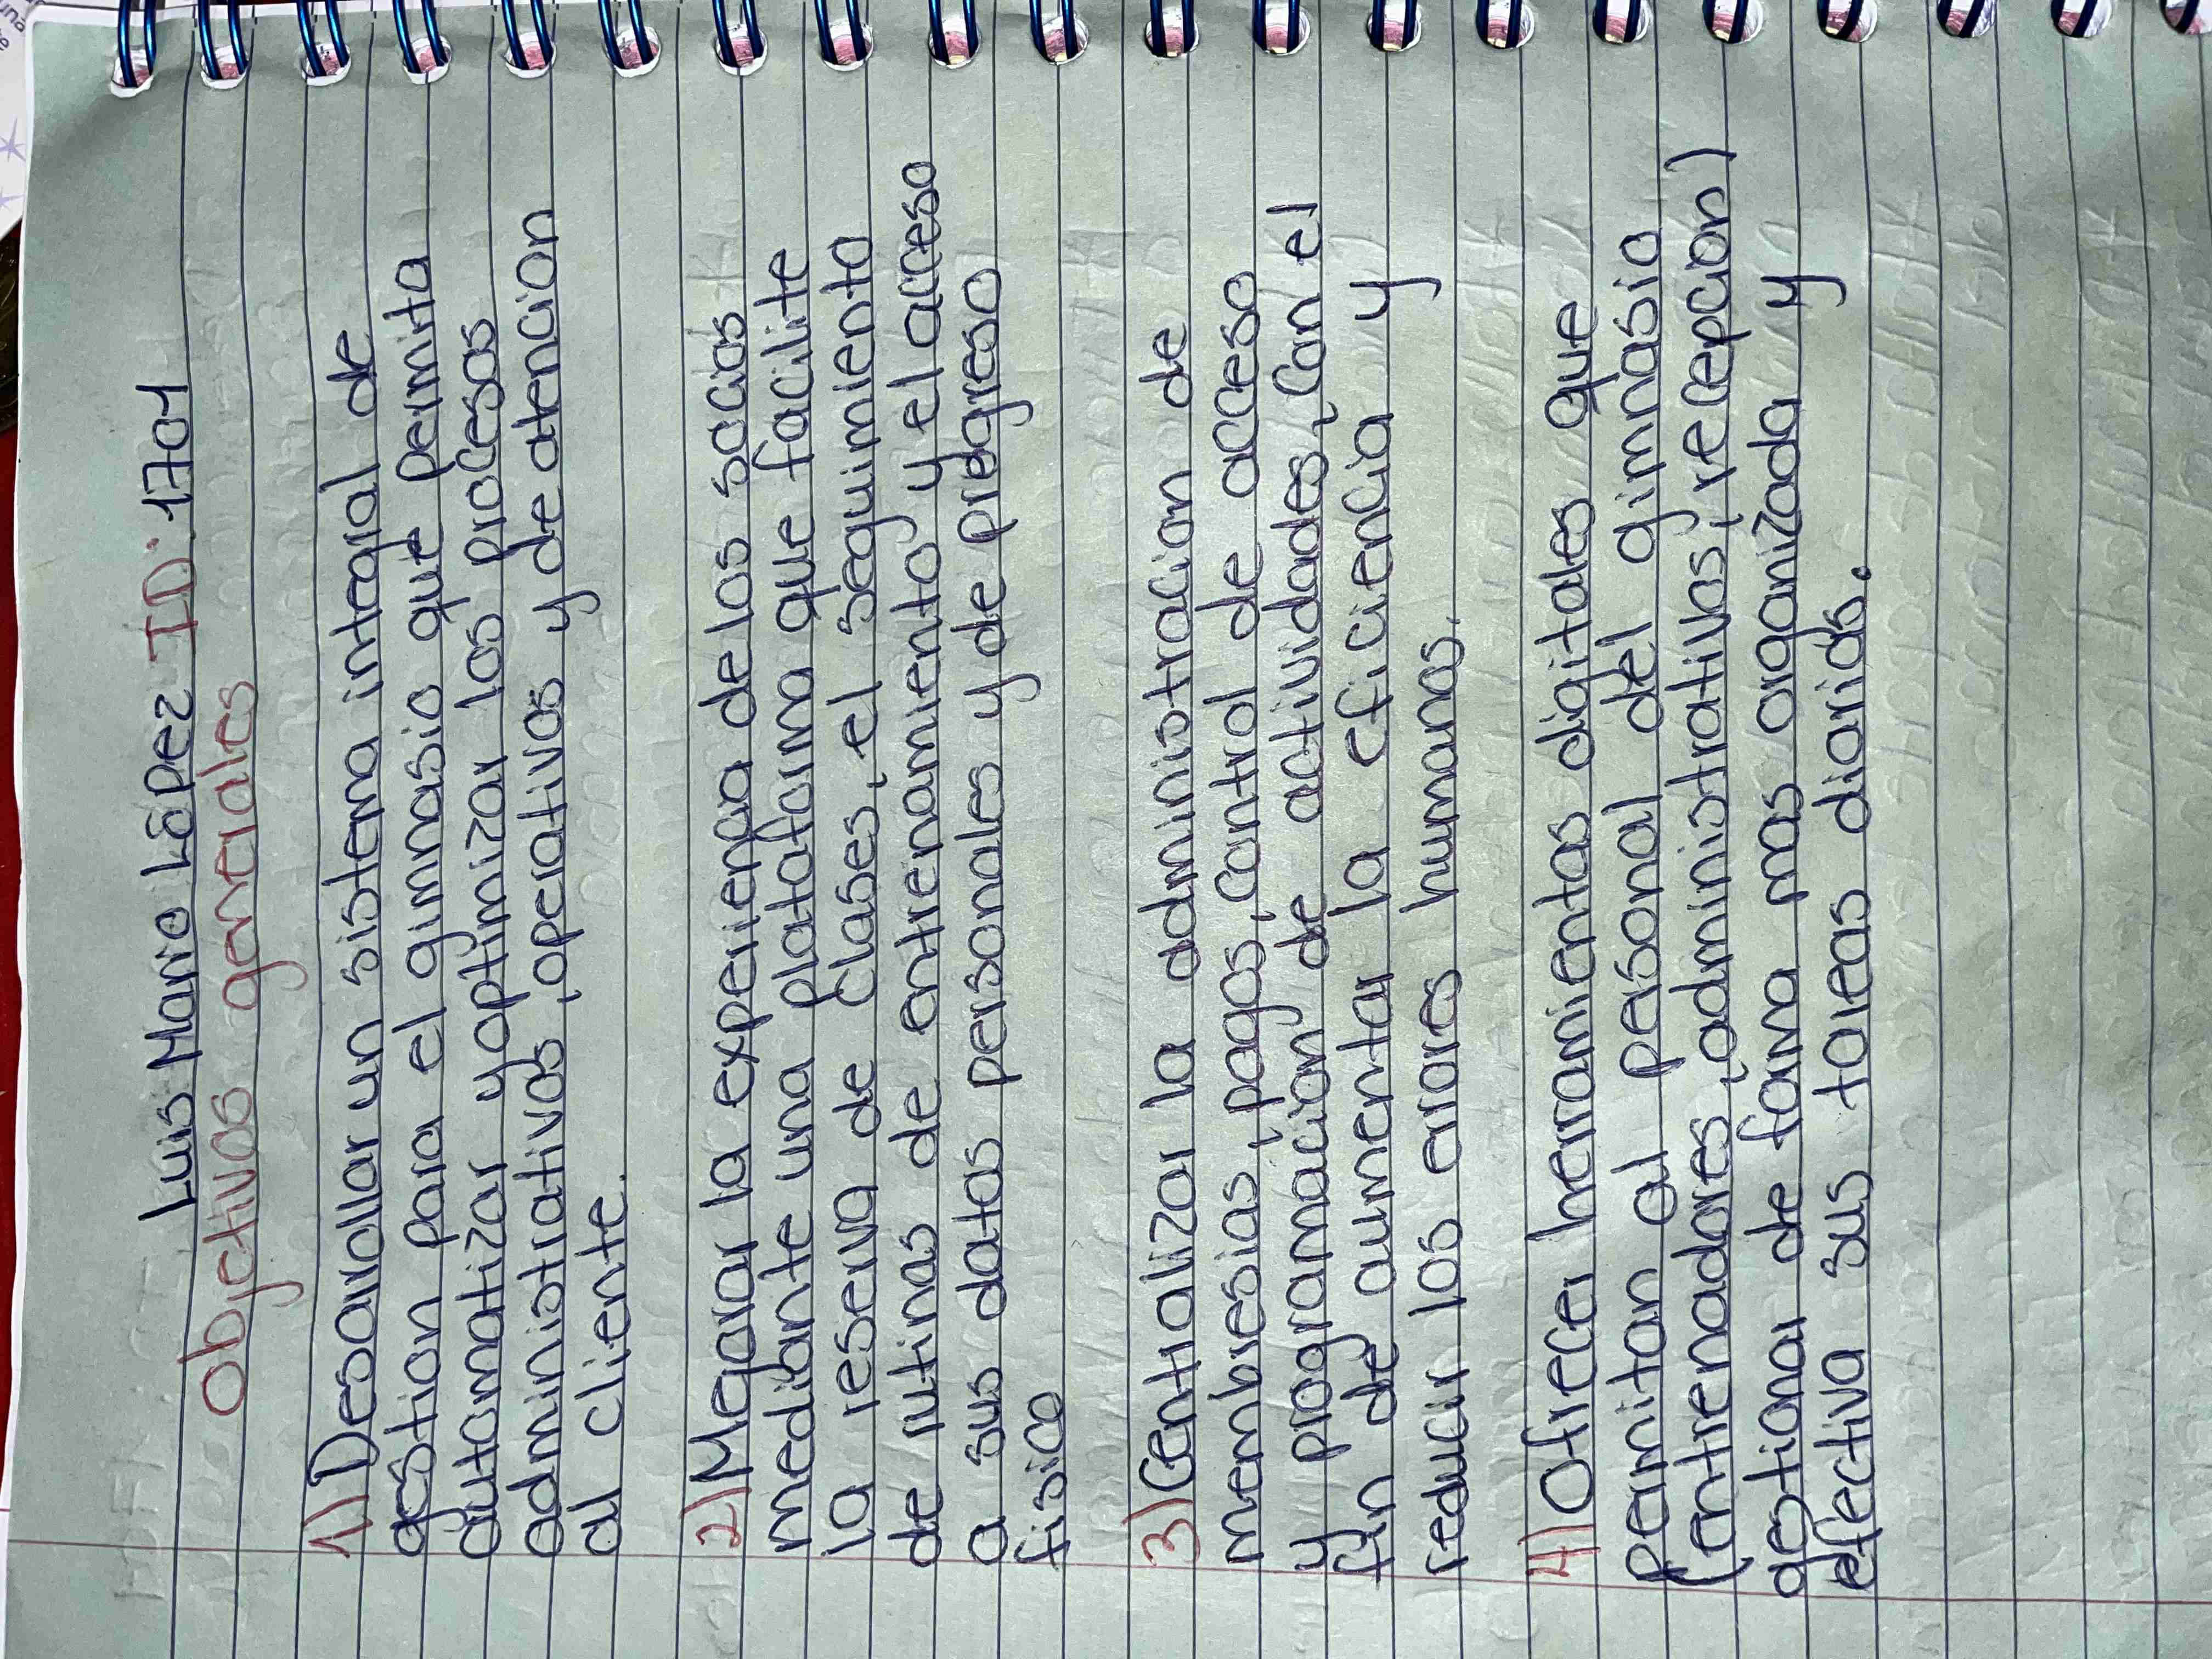 Luis Mario López ID: 1701
Objetivos generales
1) Desarrollar un sistema integral de
gestion para el gimnasio que permita
automatizar y optimizar los procesos
administrativos, operativos y de atencion
al cliente.
2) Mejorar la experiencia de los socios
mediante una plataforma que facilite
la reserva de clases, el seguimiento
de rutinas de entrenamiento y el acceso
a sus datos personales y de progreso
fisico
3) Centralizar la administracion de
membresias, pagos, control de acceso
y programacion de actividades, con el
fin de aumentar la eficiencia y
reducir los erores humanos.
4) Ofrecer herramientas digitales que
permitan al pesonal del gimnasio
(entrenadores, administrativos, recepcion)
gestionar de foma mas organizada y
efectiva sus tareas diarias.